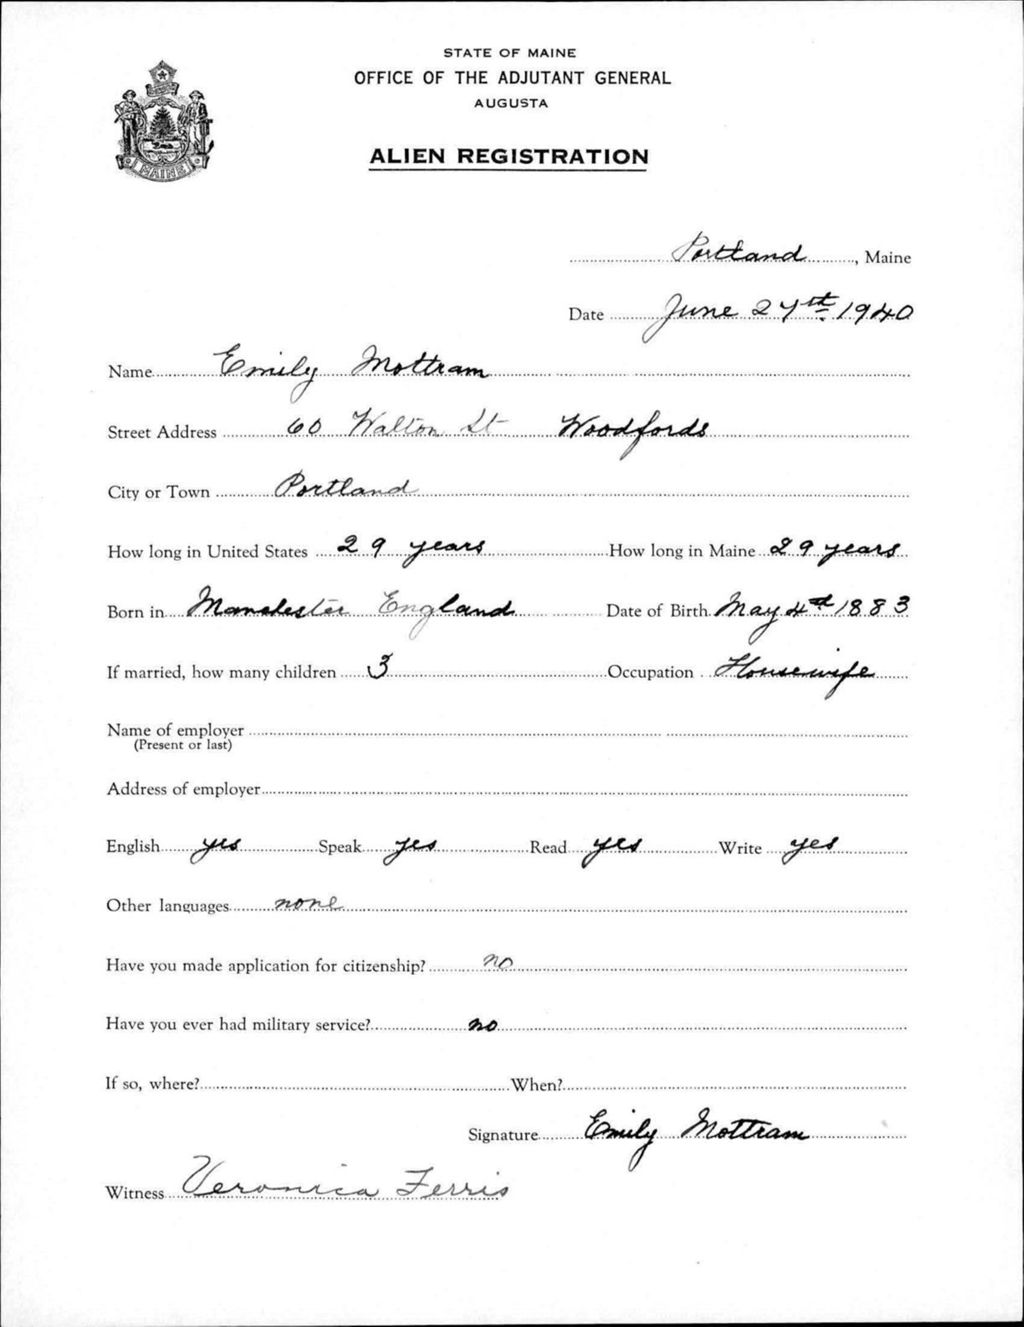 STATE OF MAINE
OFFICE OF THE ADJUTANT GENERAL
AUGUSTA
ALIEN REGISTRATION
MAINE
Portland, Maine
Date June 27th 1940
Name Emily Mottram
Street Address 60 Walton St Woodfords
City or Town Portland
How long in United States 29 years How long in Maine 29 years
Born in Manchester England Date of Birth May 4th 1883
If married, how many children 3 Occupation Housewife
Name of employer
(Present or last)
Address of employer
English yes Speak yes Read yes Write yes
Other languages none
Have you made application for citizenship? no
Have you ever had military service? no
If so, where? When?
Signature Emily Mottram
Witness Veronica Ferris